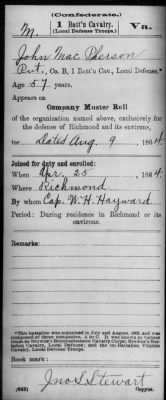 (Confederate.)
M. 1 Batt'n Cavalry, Va.
(Local Defense Troops.)
John Mac Pherson
Pvt., Co. B, 1 Batt'n Cav., Local Defense.*
Age 57 years.
Appears on
Company Muster Roll
of the organization named above, exclusively for
the defense of Richmond and its environs,
for Dated Aug. 9, 1864.
Joined for duty and enrolled:
When Apr. 25, 1864.
Where Richmond
By whom Cap. W. H. Hayward
Period: During residence in Richmond or its
environs.
Remarks:
*This battalion was organized in July and August, 1863, and was
composed of three companies, A to C. It was known at various
times as Browne's Reconnoissance Cavalry Corps; Browne's Bat-
talion Cavalry, Local Defense; and the 1st Battalion Virginia
Cavalry, Local Defense Troops.
Book mark:
Jno S Stewart
(642) Copyist.